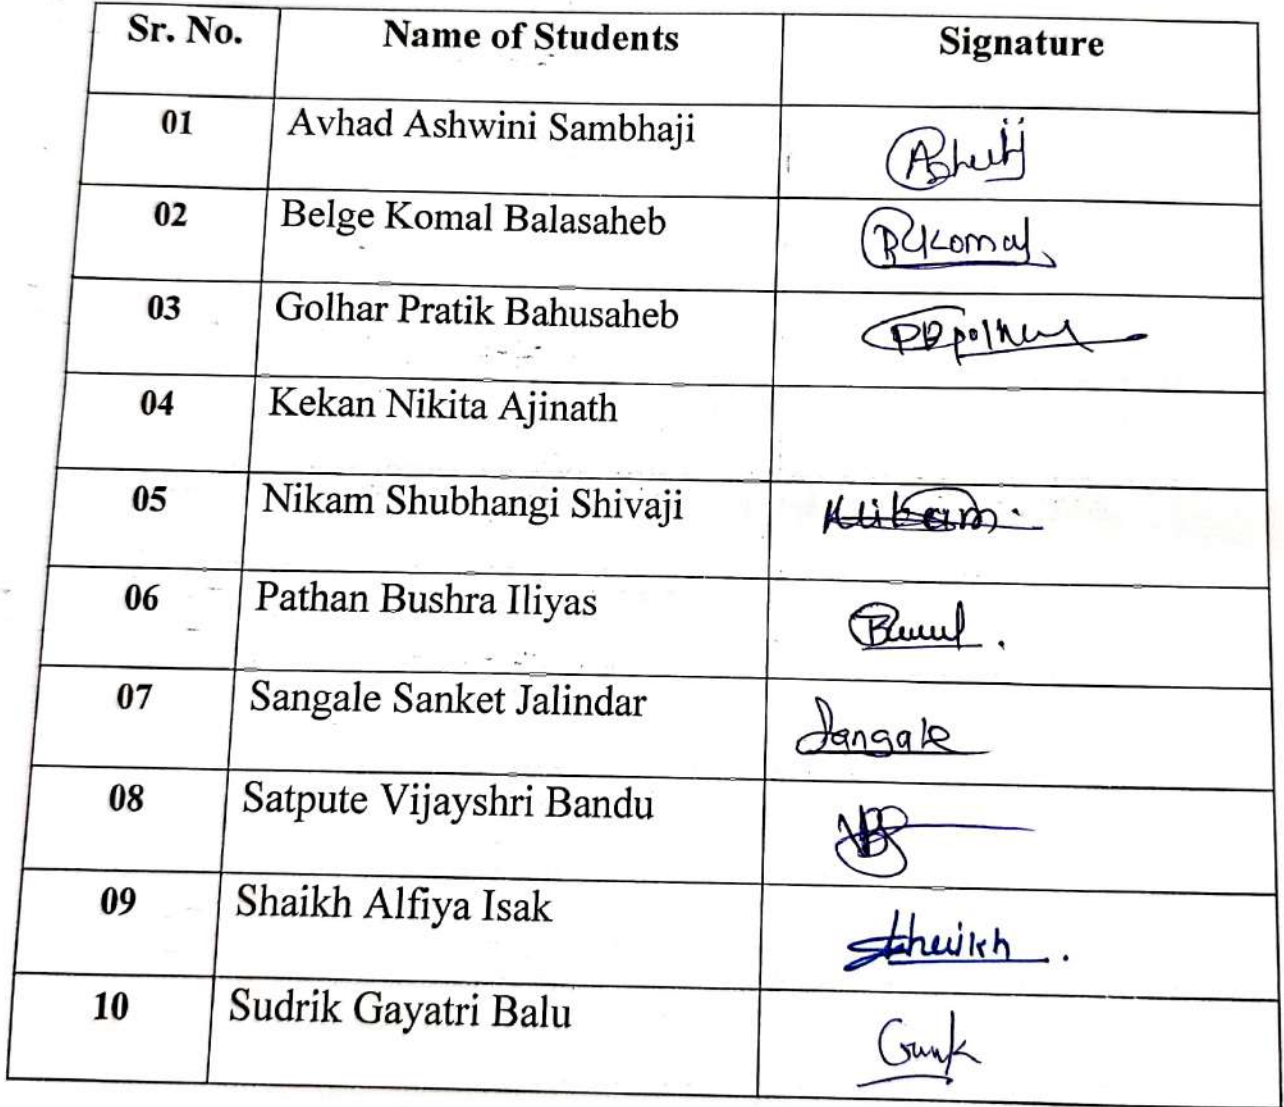 Sr. No. Name of Students Signature
01 Avhad Ashwini Sambhaji
02 Belge Komal Balasaheb Komal
03 Golhar Pratik Bahusaheb
04 Kekan Nikita Ajinath
05 Nikam Shubhangi Shivaji
06 Pathan Bushra Iliyas
07 Sangale Sanket Jalindar Sangale
08 Satpute Vijayshri Bandu
09 Shaikh Alfiya Isak Shaikh
10 Sudrik Gayatri Balu